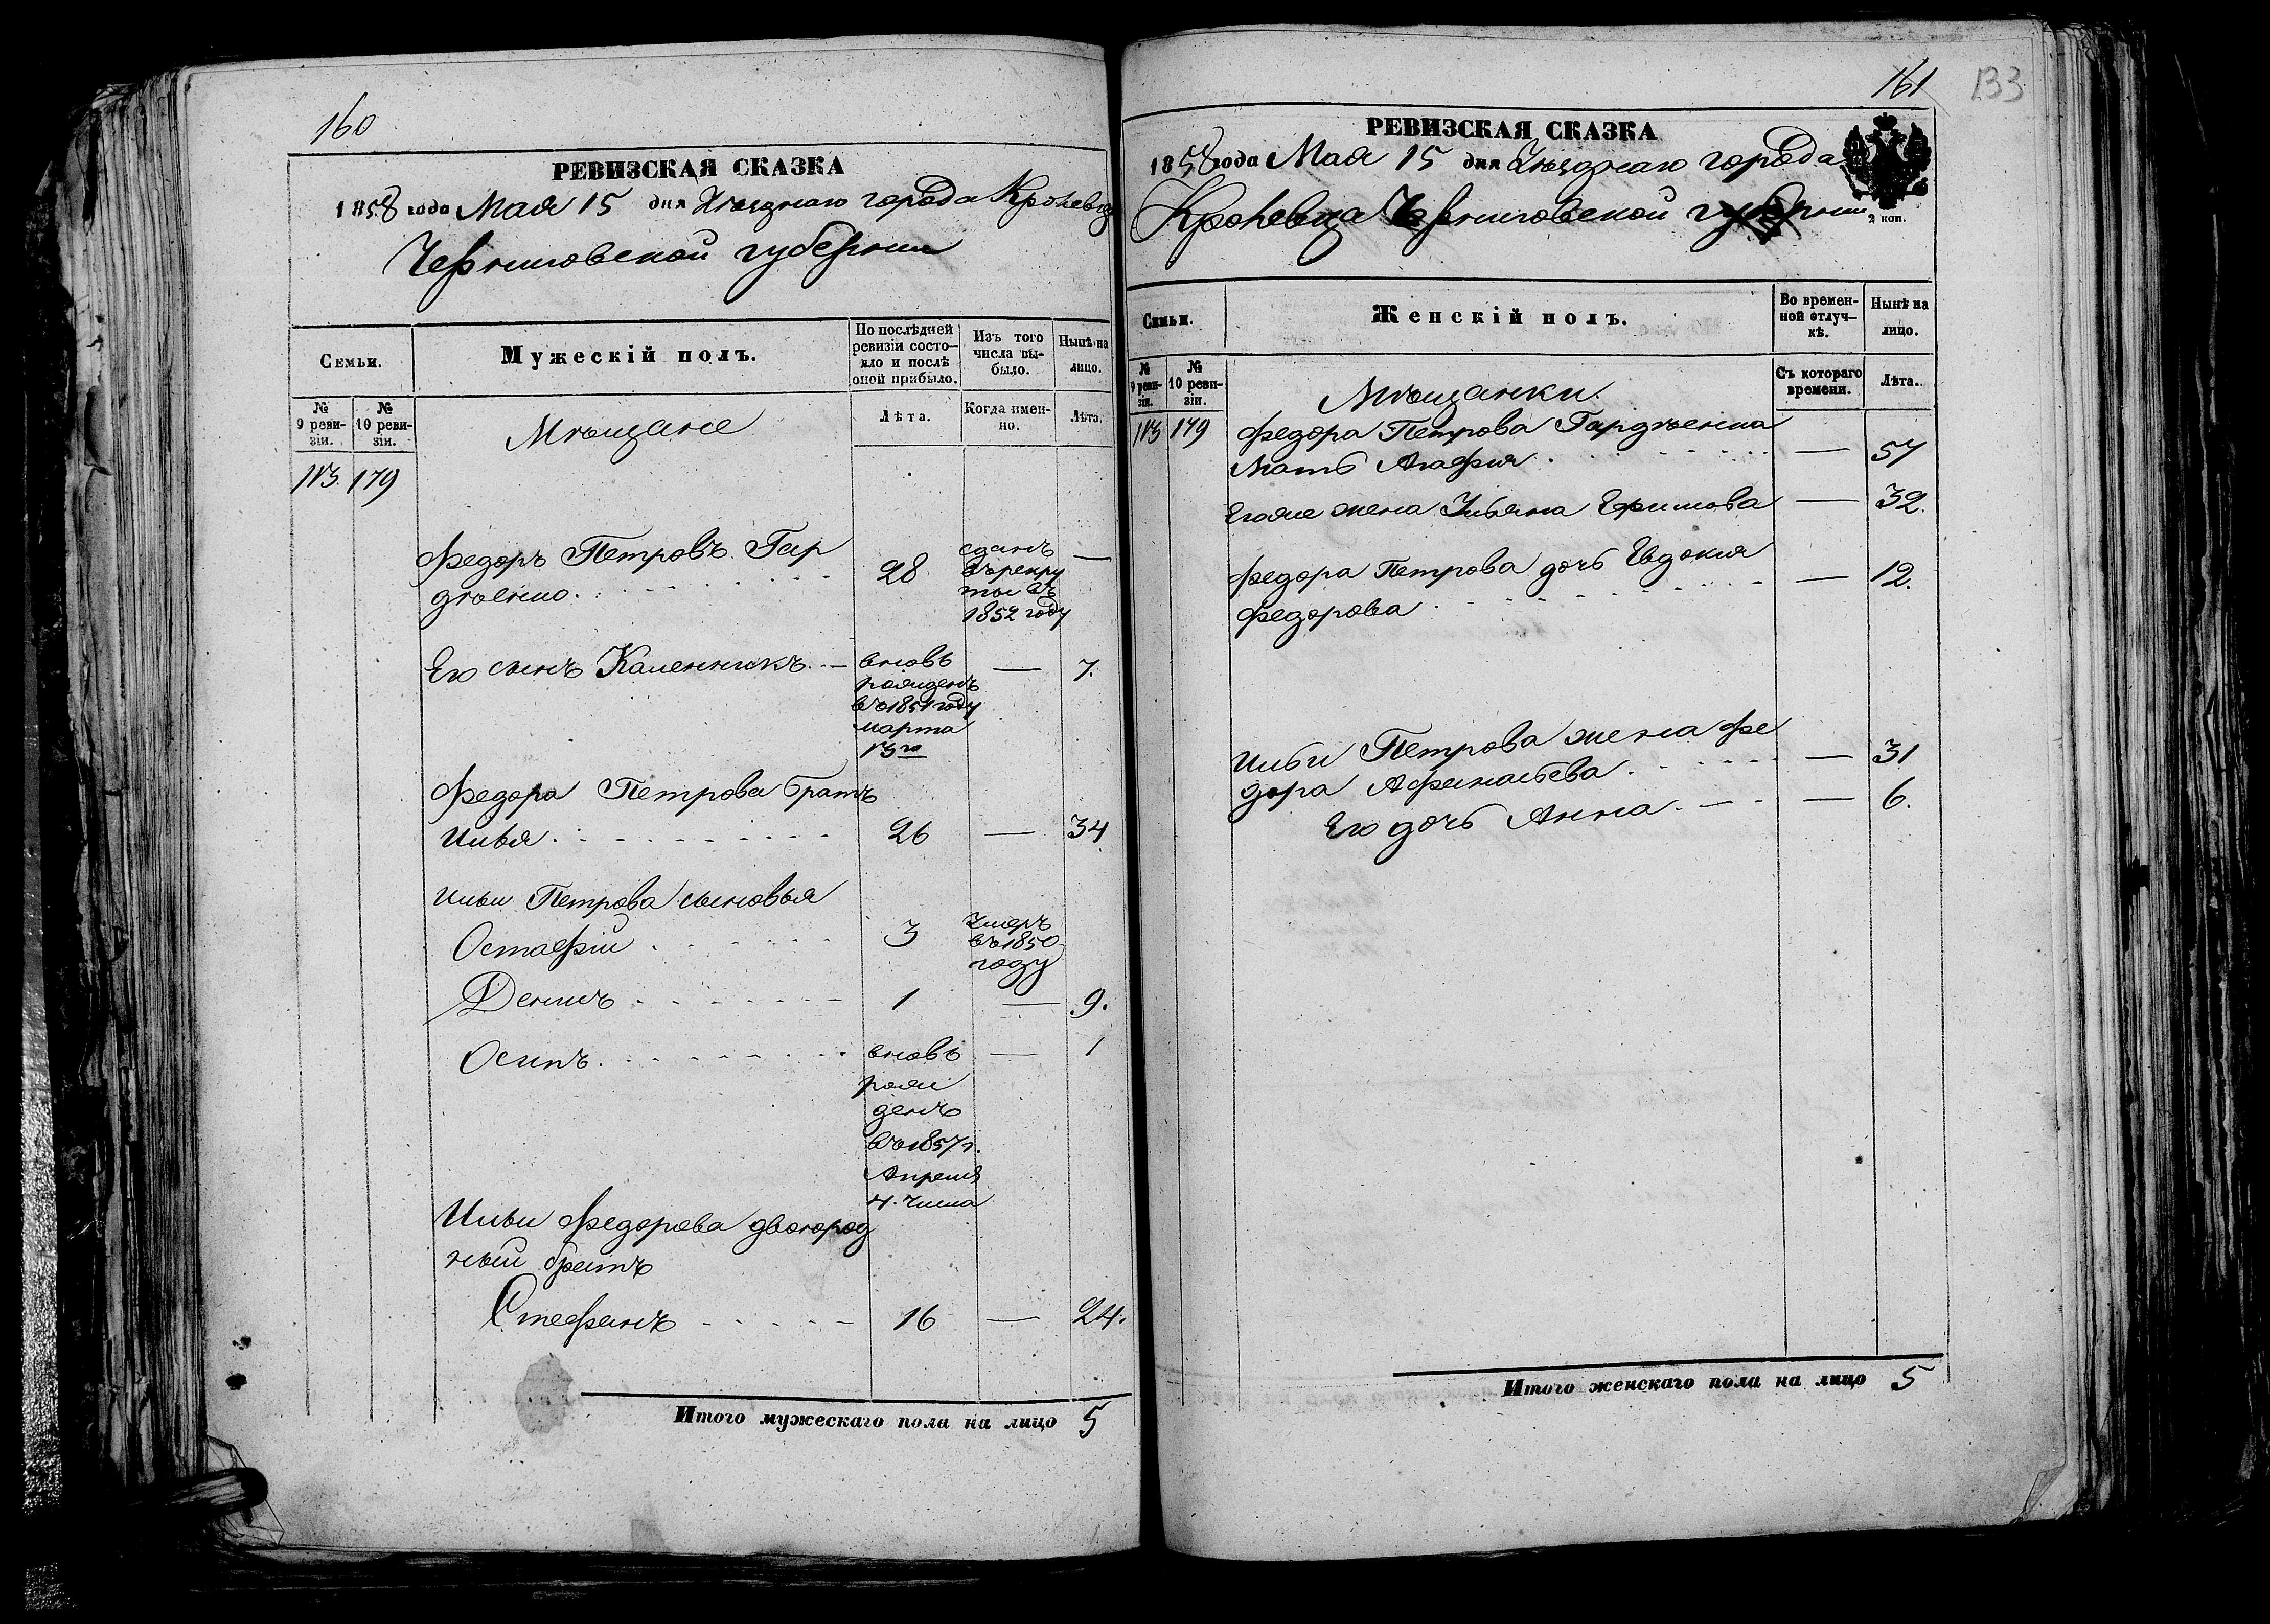 160
РЕВИЗСКАЯ СКАЗКА
1858 года Мая 15 дня Уѣзднаго города Кролевца
Черниговской губерніи
Семьи.
Мужескій полъ.
По послѣдней ревизіи состояло и послѣ оной прибыло.
Изъ того числа выбыло.
Нынѣ на лицо.
№ 9 ревизіи.
№ 10 ревизіи.
Лѣта.
Когда именно.
Лѣта.
Мѣщане
179
Федоръ Петровъ Гор
дѣенко
28
сданъ
въ рекру
ты въ
1852 году
—
Его сынъ Каленникъ
вновь
рожденъ
въ 1851 году
марта
—
7.
Федора Петрова братъ
Илья
26
—
34
Ильи Петрова сыновья
Остафій
3
Умеръ
въ 1850
году
Денисъ
1
—
9.
Осипъ
вновь
рож
денъ
въ 1857 г.
Апреля
4. числа
—
1
Ильи Федорова двоюрод
ный братъ
Стефанъ
16
—
24.
Итого мужескаго пола на лицо 5
161
133
РЕВИЗСКАЯ СКАЗКА
1858 года Мая 15 дня Уѣзднаго города
Кролевца Черниговской губерніи
2 коп.
Семьи.
Женскій полъ.
Во временной отлучкѣ.
Нынѣ на лицо.
№ 9 ревизіи.
№ 10 ревизіи.
Съ котораго времени.
Лѣта.
Мѣщанки.
179
Федора Петрова Гордѣенка
Мать Агафия
—
57
Егоже жена Ульяна Ефимова
—
32.
Федора Петрова дочь Евдокия
Федорова
—
12.
Ильи Петрова жена Фе
дора Афанасьева
—
31
Его дочь Анна
—
6.
Итого женскаго пола на лицо 5